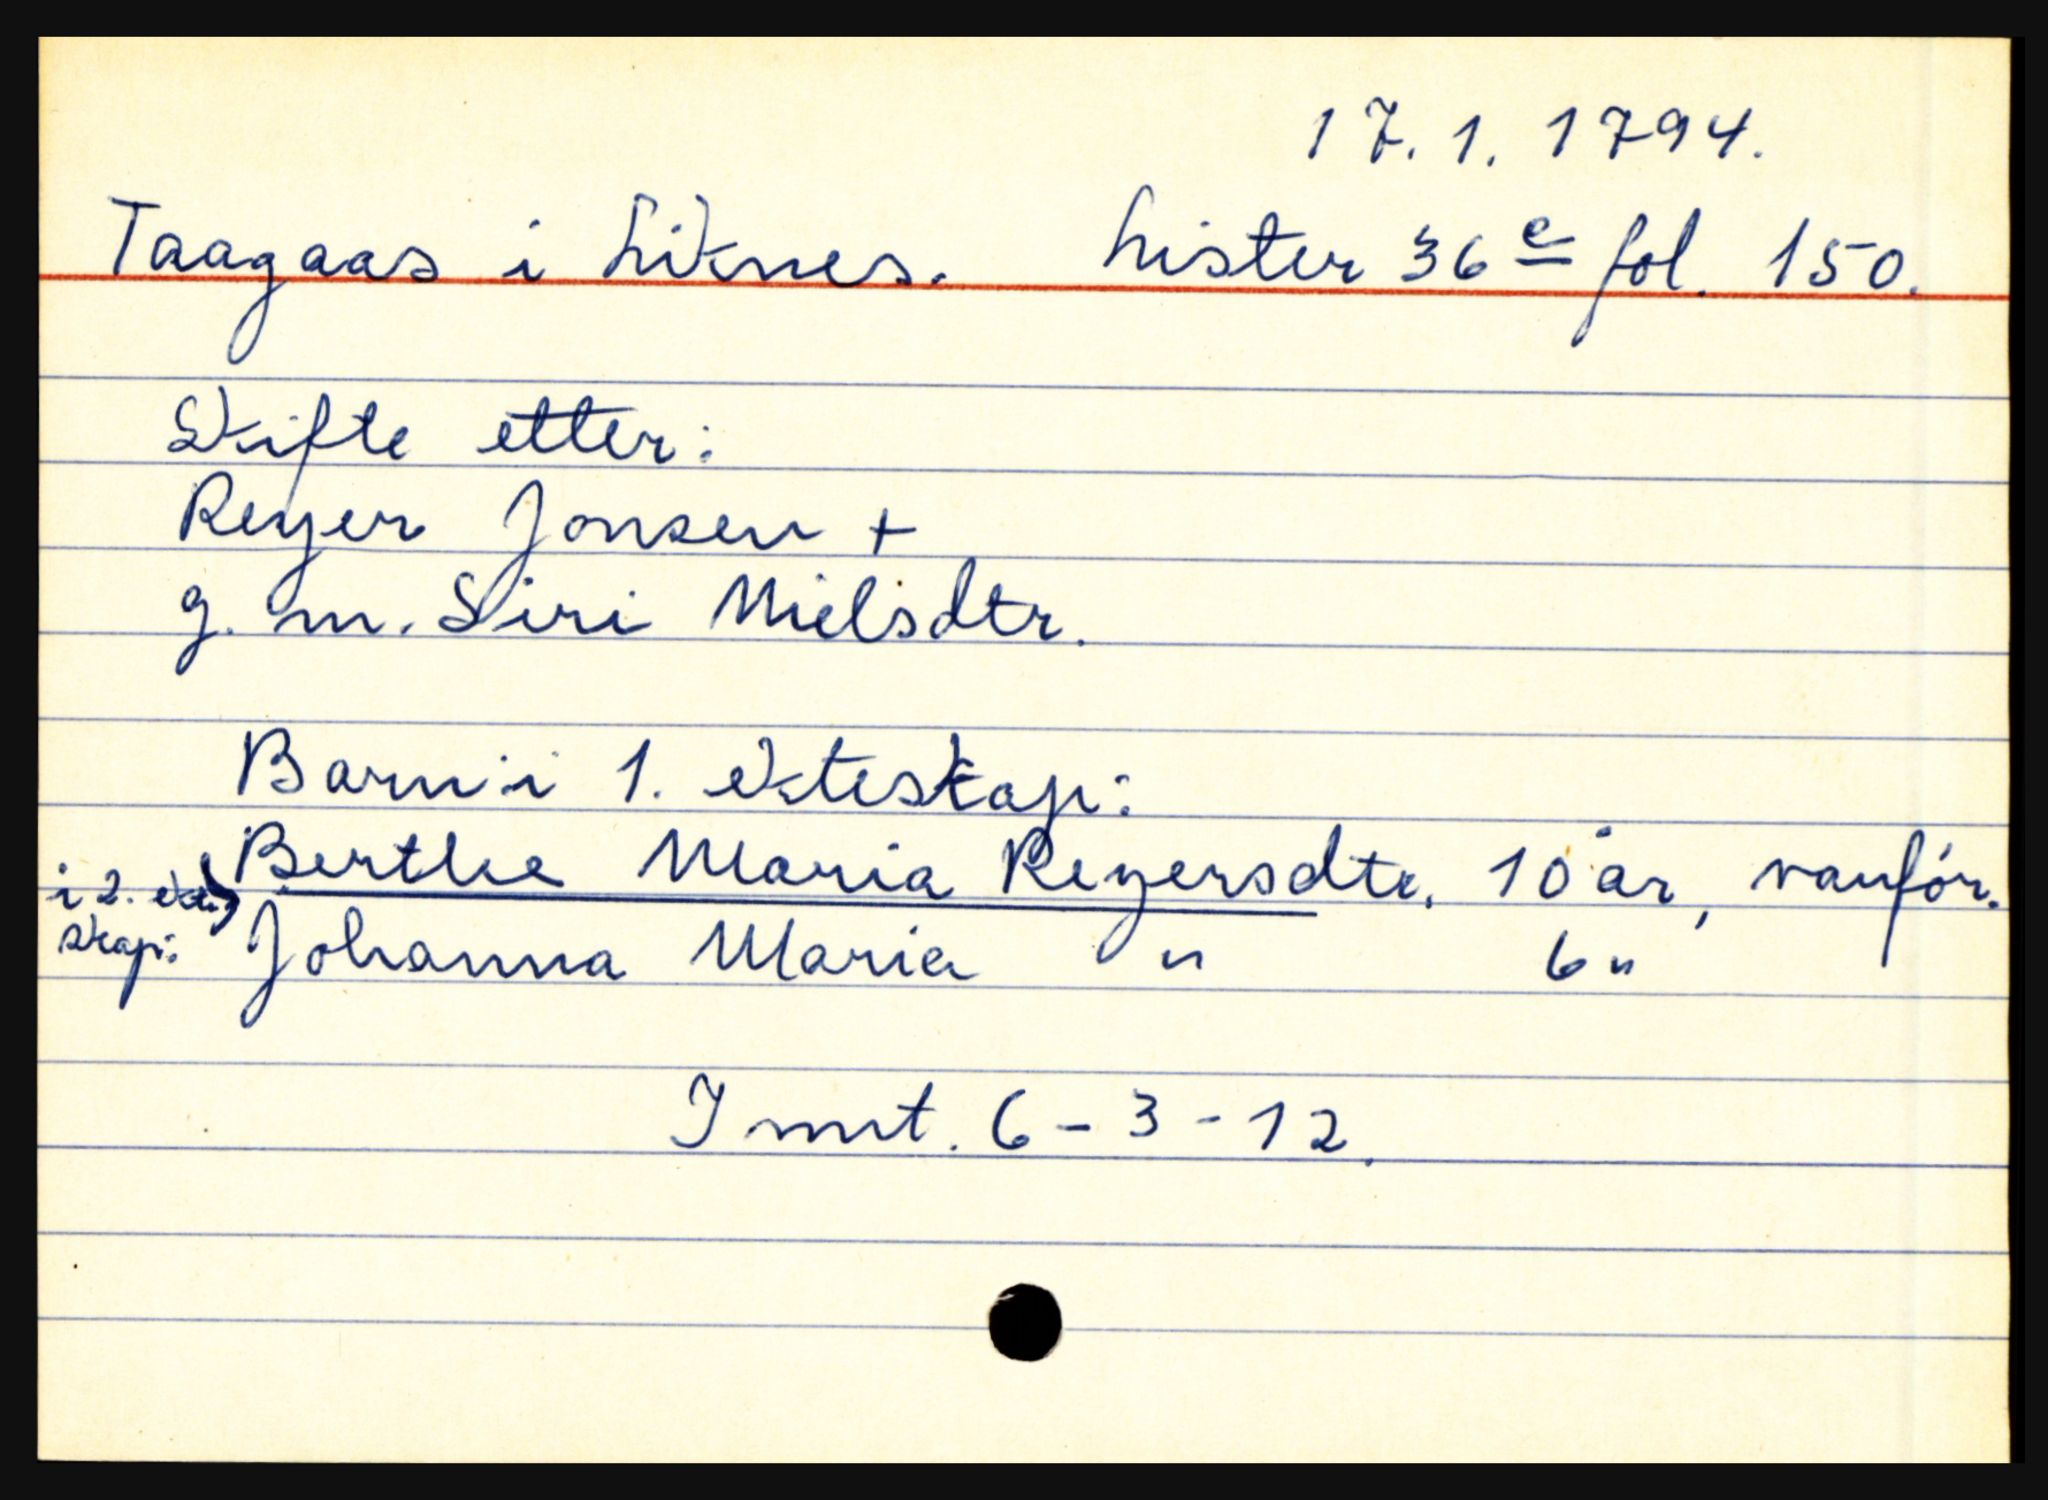 17.1.1794.
Taagaas i Liknes. Lister 36 e fol. 150.
Skifte etter:
Reyer Jonsen +
g. m. Siri Nielsdtr.
Barn i 1. ekteskap:
Berthe Maria Reyersdtr. 10 år, vanfør.
i 2. ekte-
skap: Johanna Maria " 6 "
I mrt. 6-3-12.